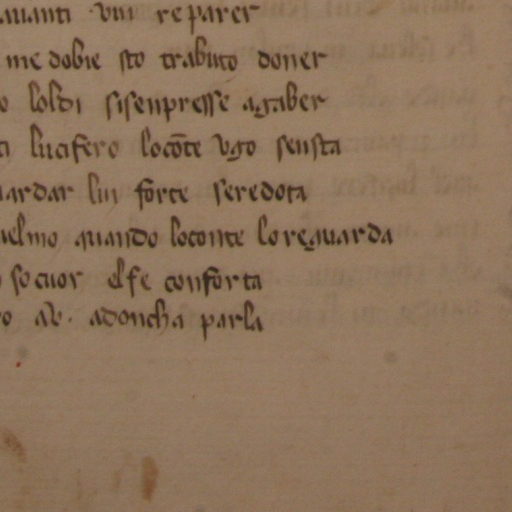 avanti vni reparer
me dobie sto trabuto doner
o loldi sisenpresse agaber
ti lucifero locōte vgo sensta
uardar luj forte seredota
ielmo quando loconte loreguarda
socuor elfe conforta
o ab. adoncha parla